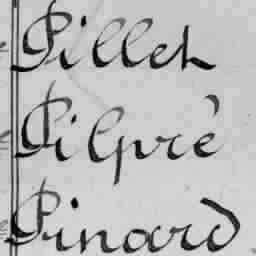 Pillet
Pilpré
Pinard